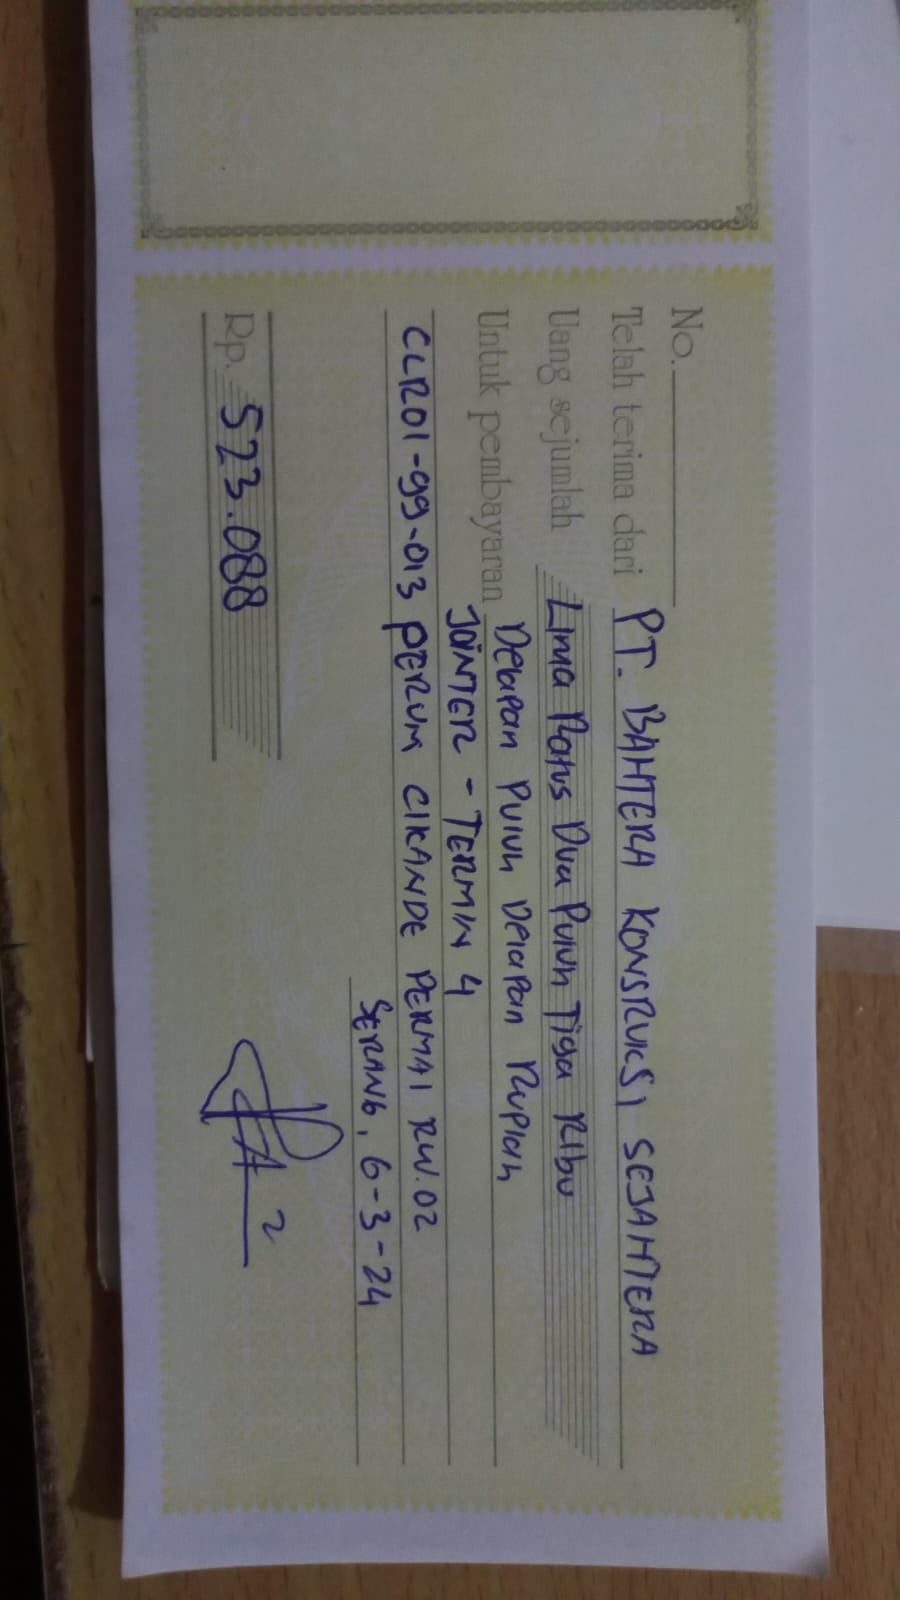 No.
Telah terima dari PT. BAHTERA KONSRUKSI SEJAHTERA
Uang sejumlah Lima Ratus Dua Puluh Tiga Ribu
Delapan Puluh Delapan Rupiah
Untuk pembayaran JOINTER - TERMIN 4
CLR01-99-013 PERUM CIKANDE PERMAI RW.02
SERANG, 6-3-24
Rp. 523.088